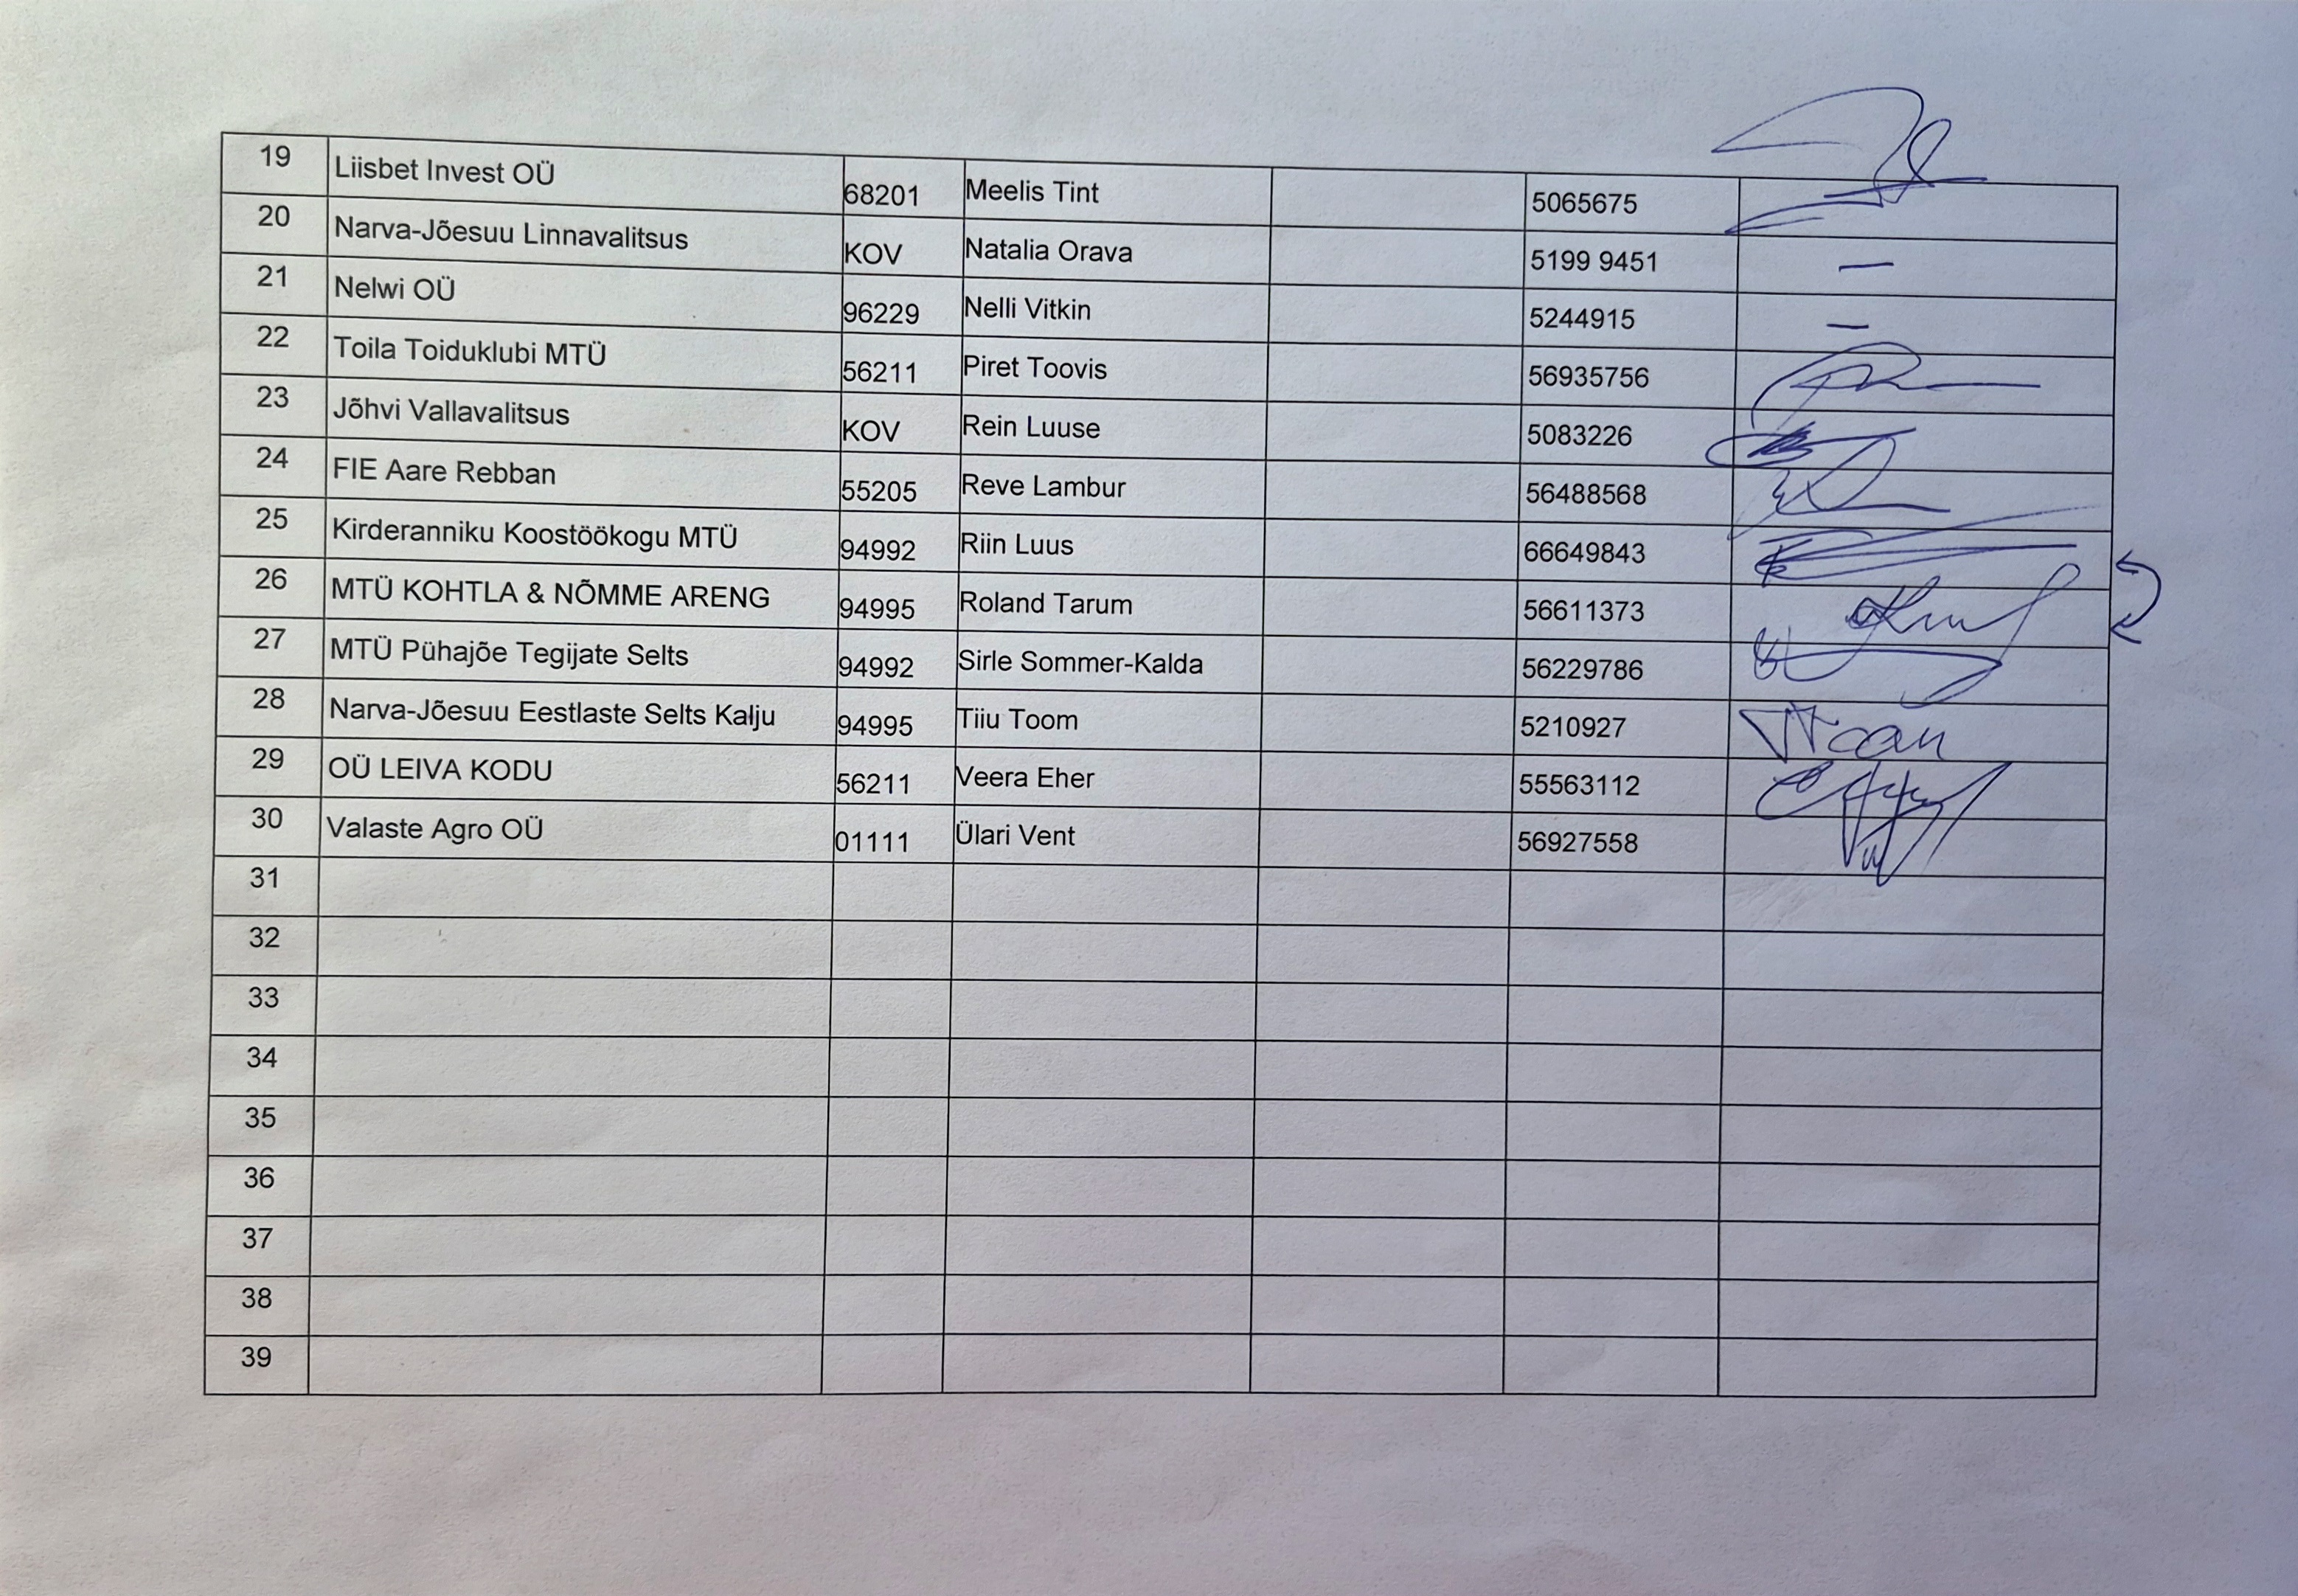 19 Liisbet Invest OÜ 68201 Meelis Tint 5065675
20 Narva-Jõesuu Linnavalitsus KOV Natalia Orava 5199 9451 —
21 Nelwi OÜ 96229 Nelli Vitkin 5244915 —
22 Toila Toiduklubi MTÜ 56211 Piret Toovis 56935756
23 Jõhvi Vallavalitsus KOV Rein Luuse 5083226
24 FIE Aare Rebban 55205 Reve Lambur 56488568
25 Kirderanniku Koostöökogu MTÜ 94992 Riin Luus 66649843
26 MTÜ KOHTLA & NÕMME ARENG 94995 Roland Tarum 56611373
27 MTÜ Pühajõe Tegijate Selts 94992 Sirle Sommer-Kalda 56229786
28 Narva-Jõesuu Eestlaste Selts Kalju 94995 Tiiu Toom 5210927
29 OÜ LEIVA KODU 56211 Veera Eher 55563112
30 Valaste Agro OÜ 01111 Ülari Vent 56927558
31
32
33
34
35
36
37
38
39